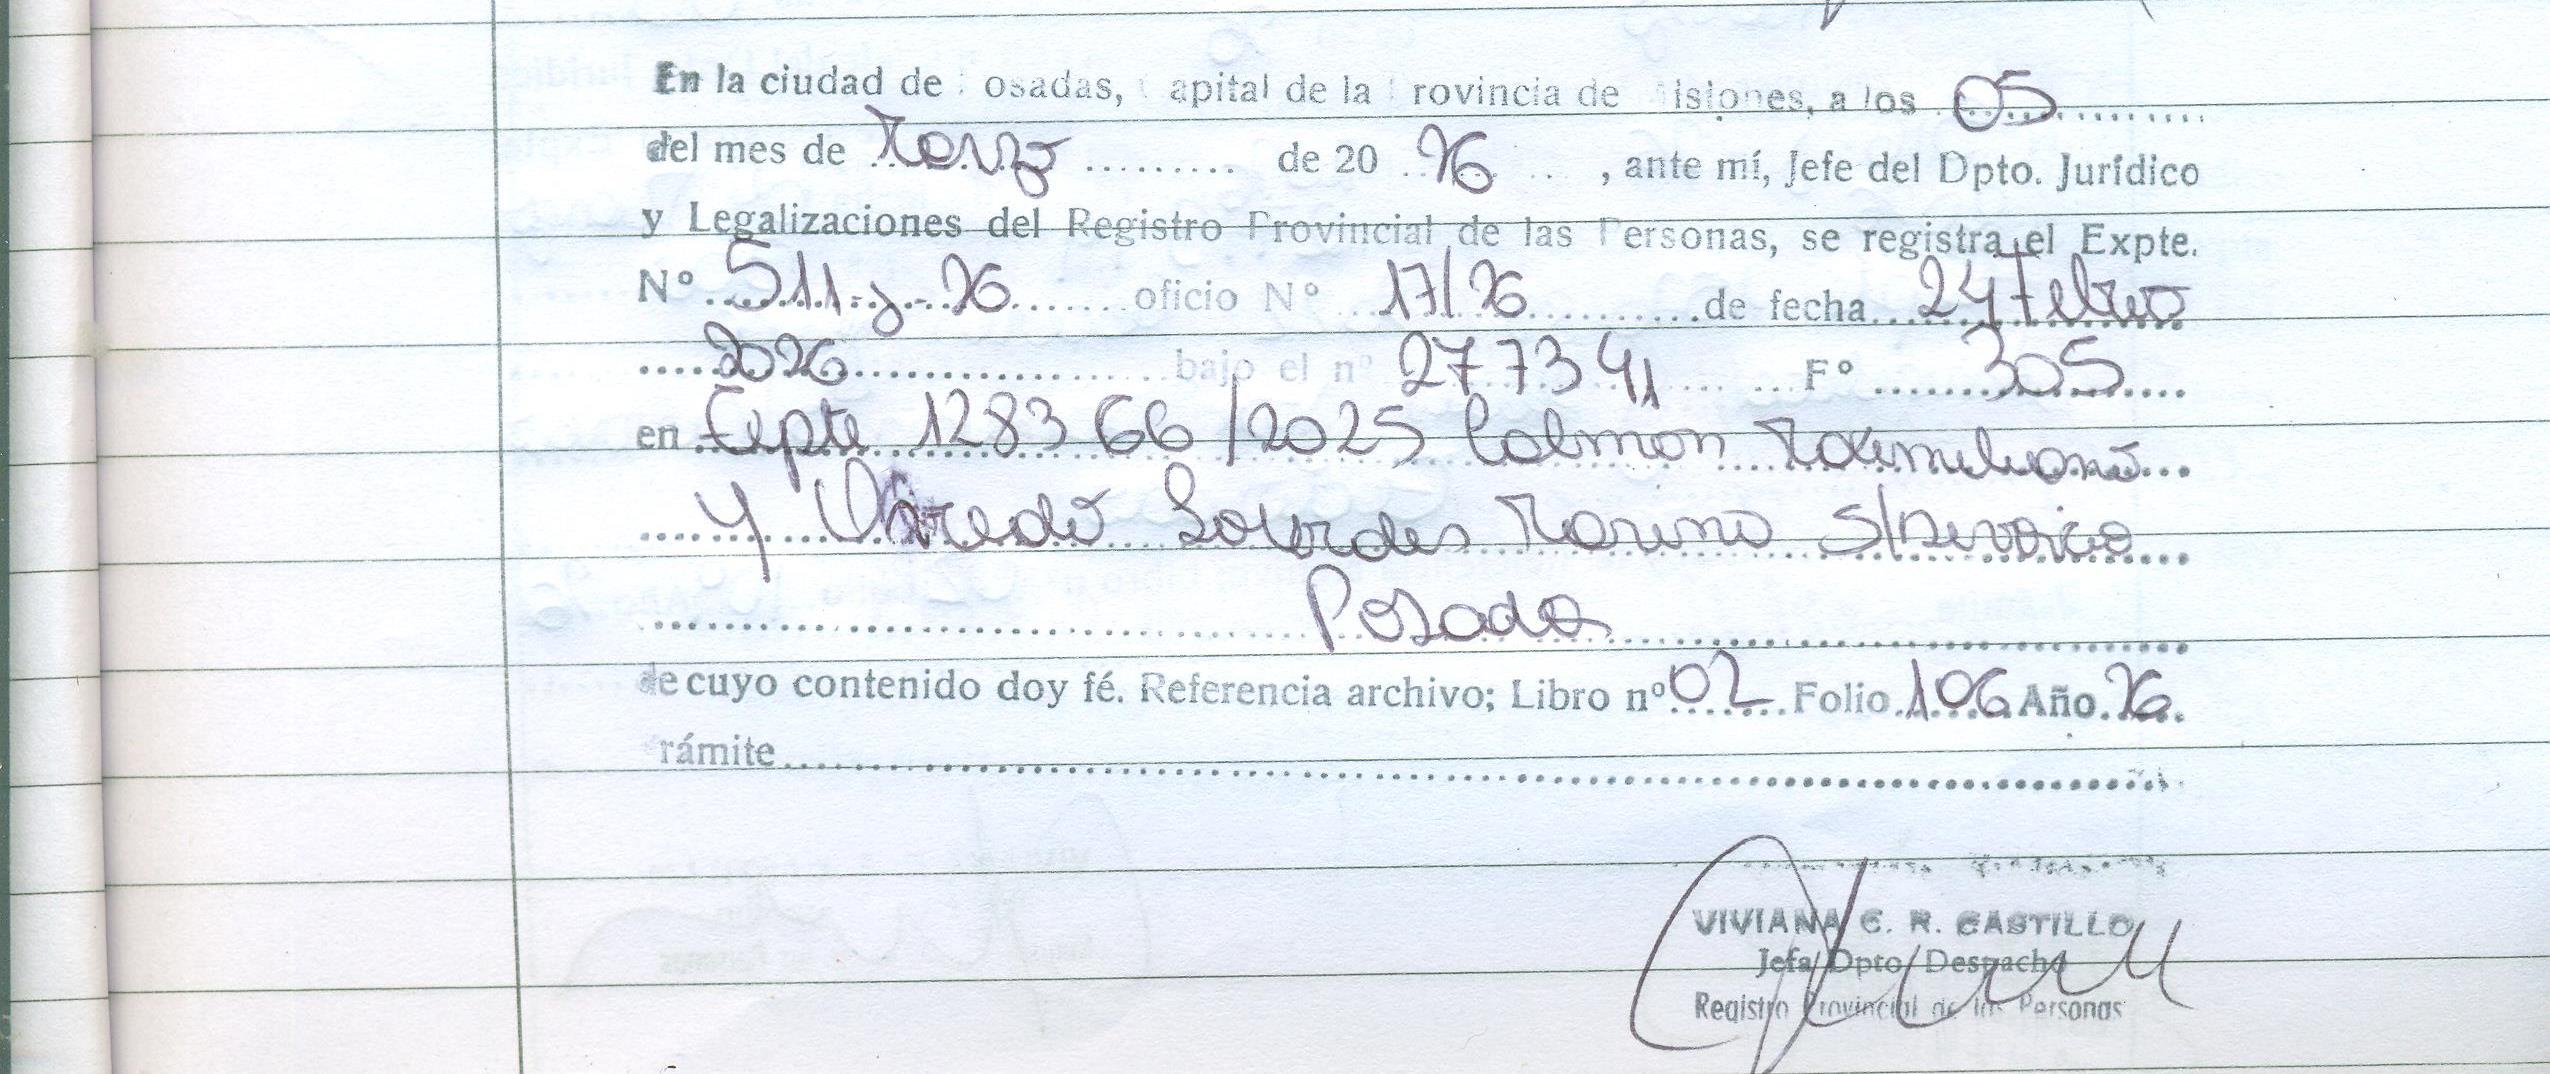 En la ciudad de Posadas, Capital de la Provincia de Misiones, a los 05
del mes de Marzo de 20 26 , ante mí, Jefe del Dpto. Jurídico
y Legalizaciones del Registro Provincial de las Personas, se registra el Expte.
Nº 511-y-26 oficio Nº 17/26 de fecha 24 Febrero
2026 bajo el nº 277341 Fº 305
en Expte 128366/2025 Colman Maximiliano
y Lourdes Marina S/Divorcio
Posadas
de cuyo contenido doy fé. Referencia archivo; Libro nº 02 Folio 106 Año 26
trámite
VIVIANA C. R. CASTILLO
Jefa Dpto Despacho
Registro Provincial de las Personas